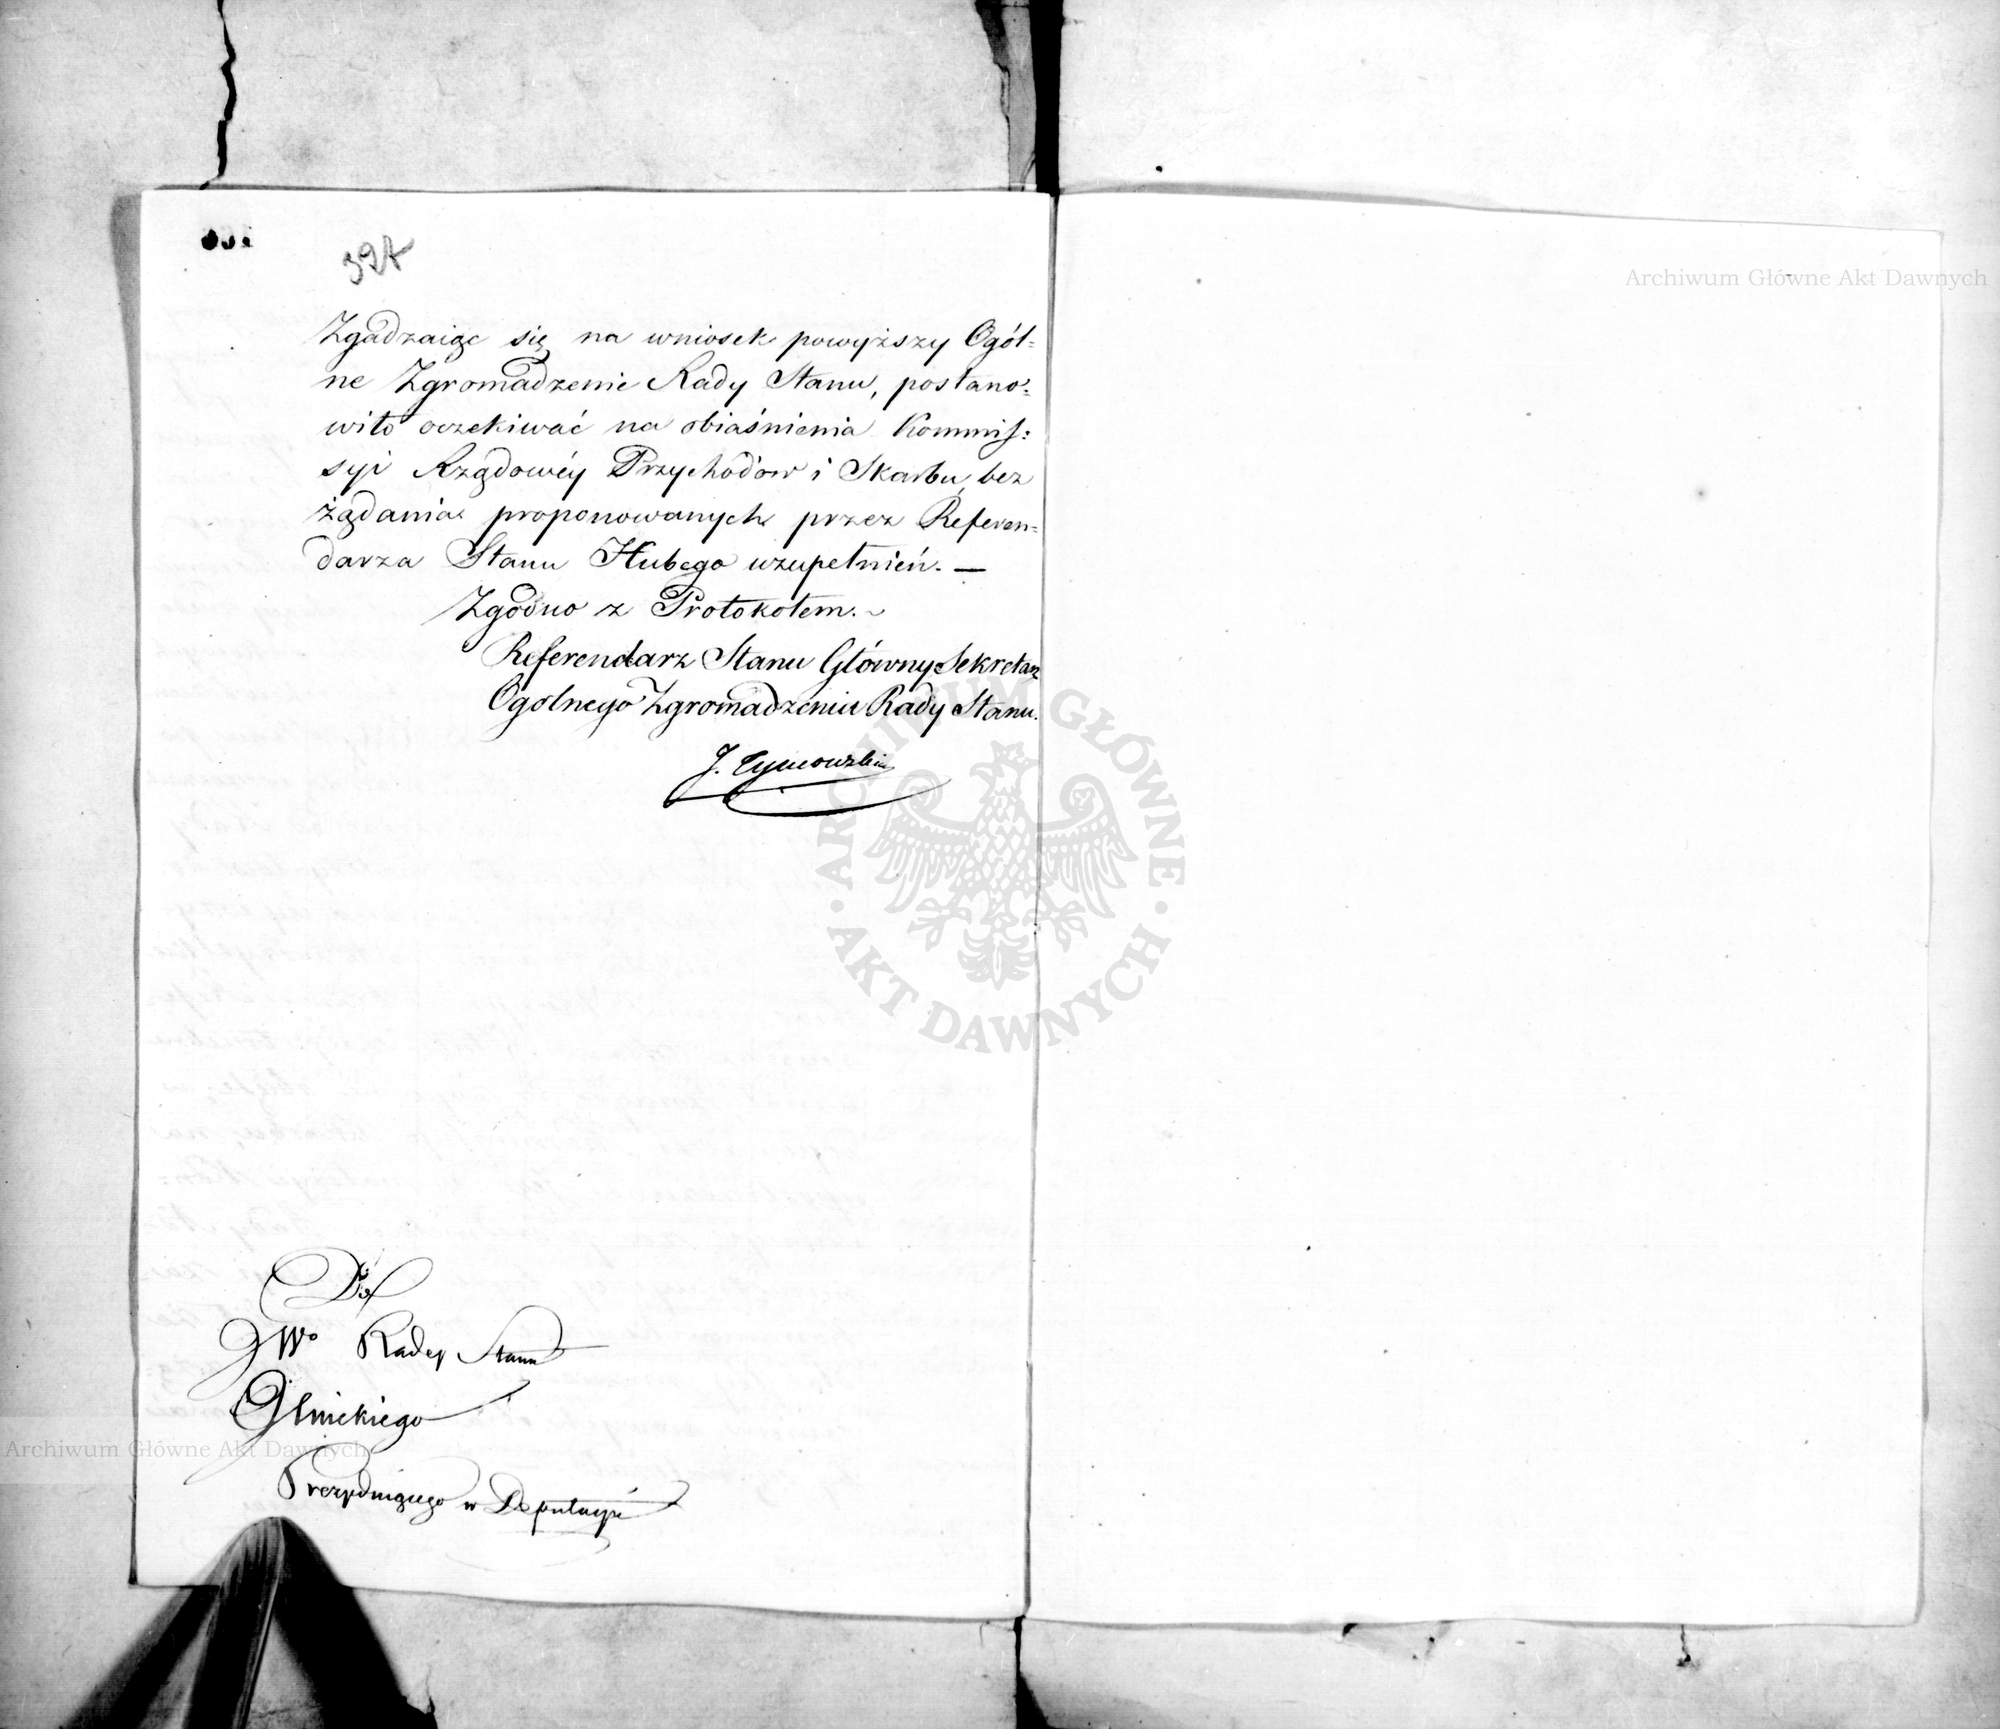 327
Zgadzaiąc się na wniosek powyższy Ogól=
ne Zgromadzenie Rady Stanu, postano=
wiło oczekiwać na obiaśnienia Kommis=
syi Rządowéy Przychodów i Skarbu, bez
żądania proponowanych przez Referen=
darza Stanu Hubego uzupełnień. —
Zgodno z Protokołem. ~
Referendarz Stanu Główny Sekretarz
Ogólnego Zgromadzenia Rady Stanu.
J. Tymowski
Do
JWo Radcy Stanu
Glinickiego
Prezyduiącego w Deputacyi
Archiwum Główne Akt Dawnych
Archiwum Główne Akt Dawnych
ARCHIWUM GŁÓWNE · AKT DAWNYCH ·